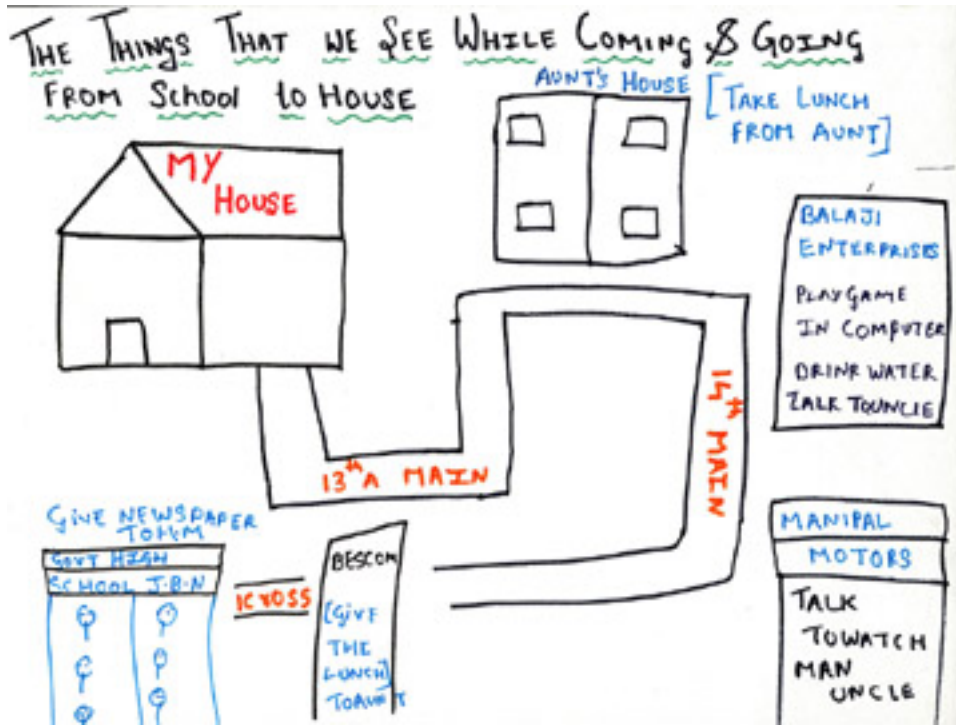 THE THINGS THAT WE SEE WHILE COMING & GOING
FROM SCHOOL to HOUSE
AUNT'S HOUSE
[TAKE LUNCH
FROM AUNT]
MY
HOUSE
BALAJI
ENTERPRISES
PLAY GAME
IN COMPUTER
DRINK WATER
TALK TO UNCLE
14th MAIN
13th A MAIN
GIVE NEWSPAPER
TO H.M
GOVT HIGH
SCHOOL J.B.N
I CROSS
BESCOM
[GIVE
THE
LUNCH]
TO AUNT
MANIPAL
MOTORS
TALK
TO WATCH
MAN
UNCLE